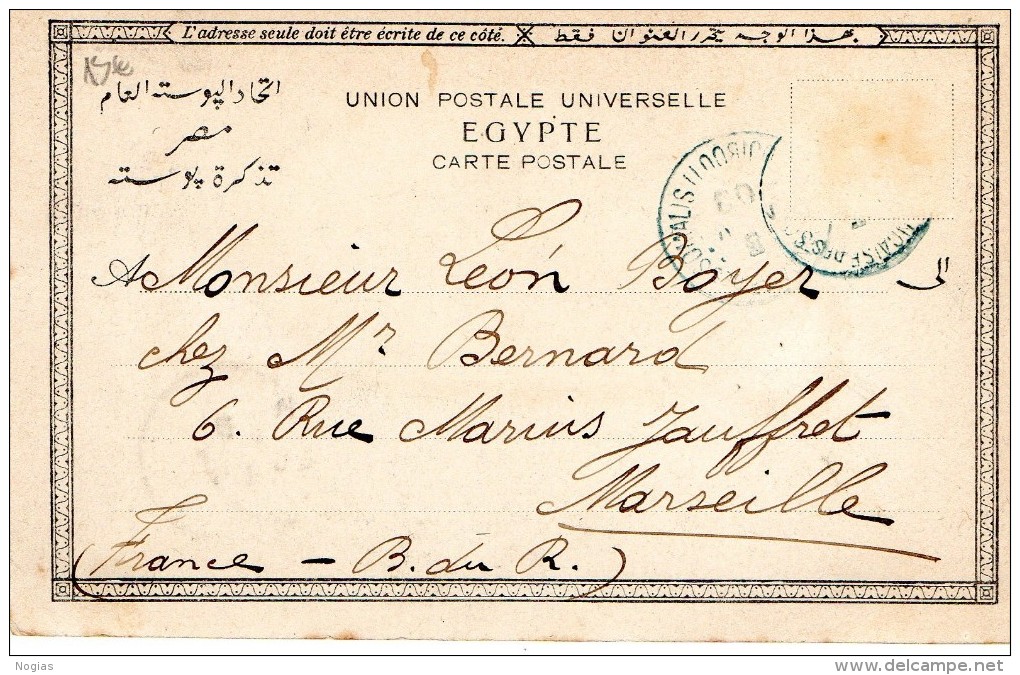 L'adresse seule doit être écrite de ce côté.
بهذا الوجه يحرر العنوان فقط
اتحاد البوسته العام
مصر
تذكرة بوسته
UNION POSTALE UNIVERSELLE
EGYPTE
CARTE POSTALE
DJIBOUTI
A Monsieur Léon Boyer
الى
chez Mr Bernard
6. Rue Marius Jauffret
Marseille
(France – B. du R.)
Nogias
delcampe.net